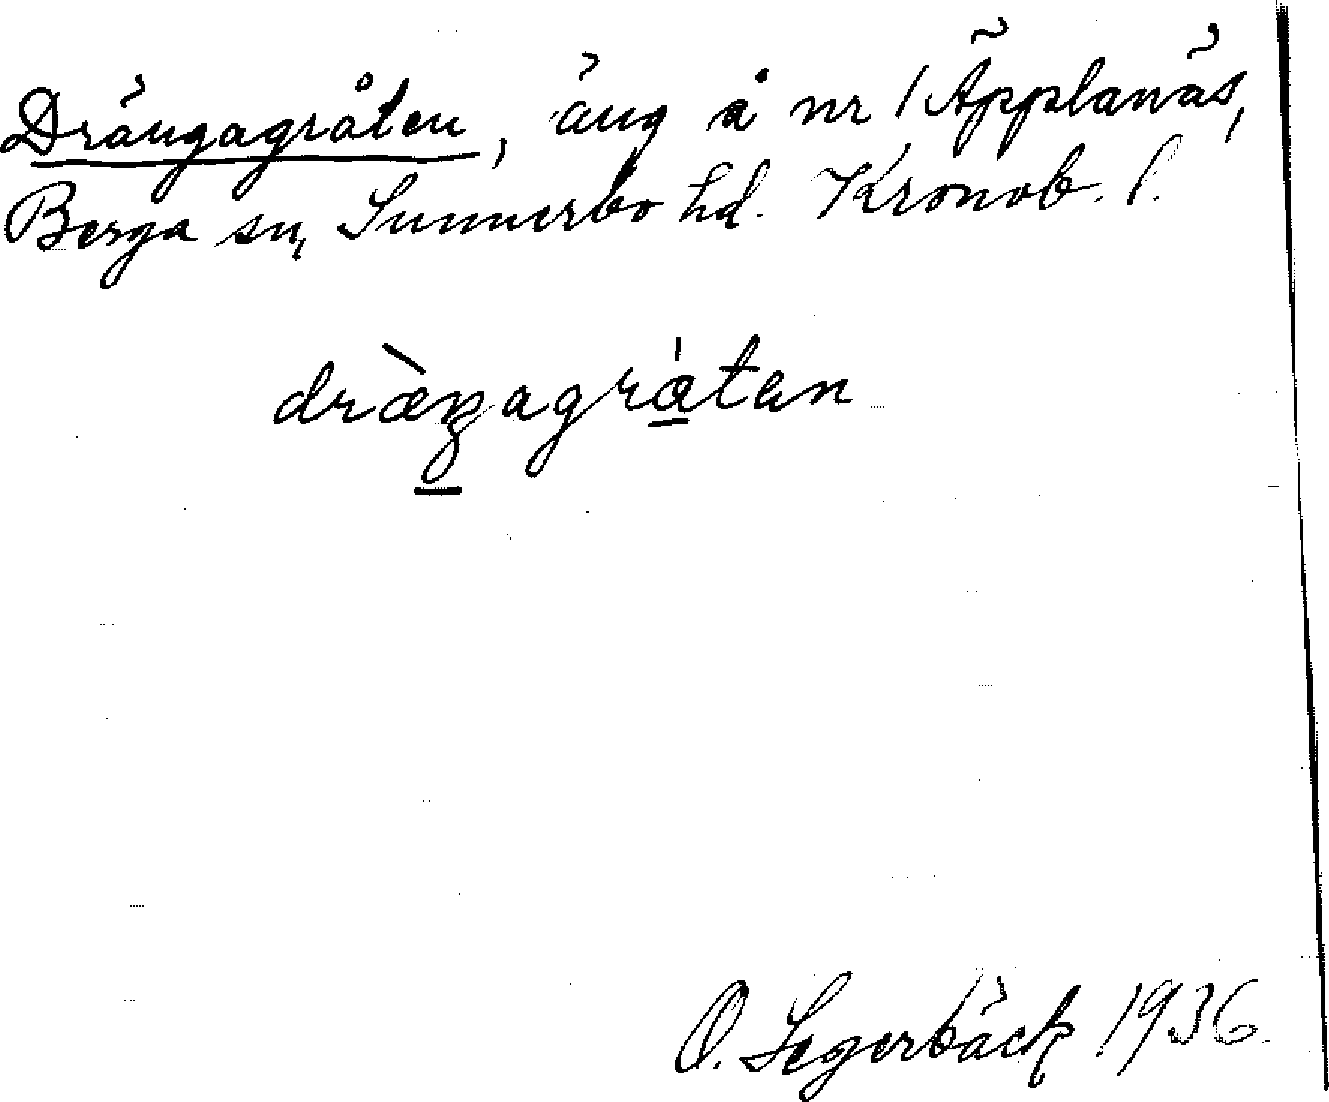 Drängagråten, äng å nr 1 Äpplanäs,
Berga sn, Sunnerbo hd. Kronob. l.
dræ̀ŋagrǻtan
O. Segerbäck 1936.